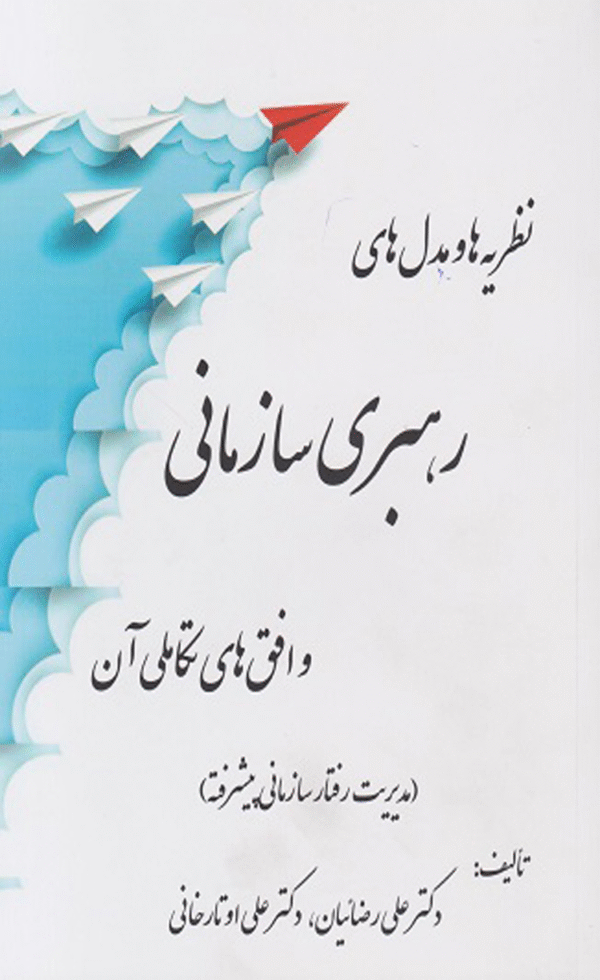 نظریه ها و مدل های
رهبری سازمانی
و افق های تکاملی آن
(مدیریت رفتار سازمانی پیشرفته)
تألیف:
دکتر علی رضائیان، دکتر علی اوتارخانی